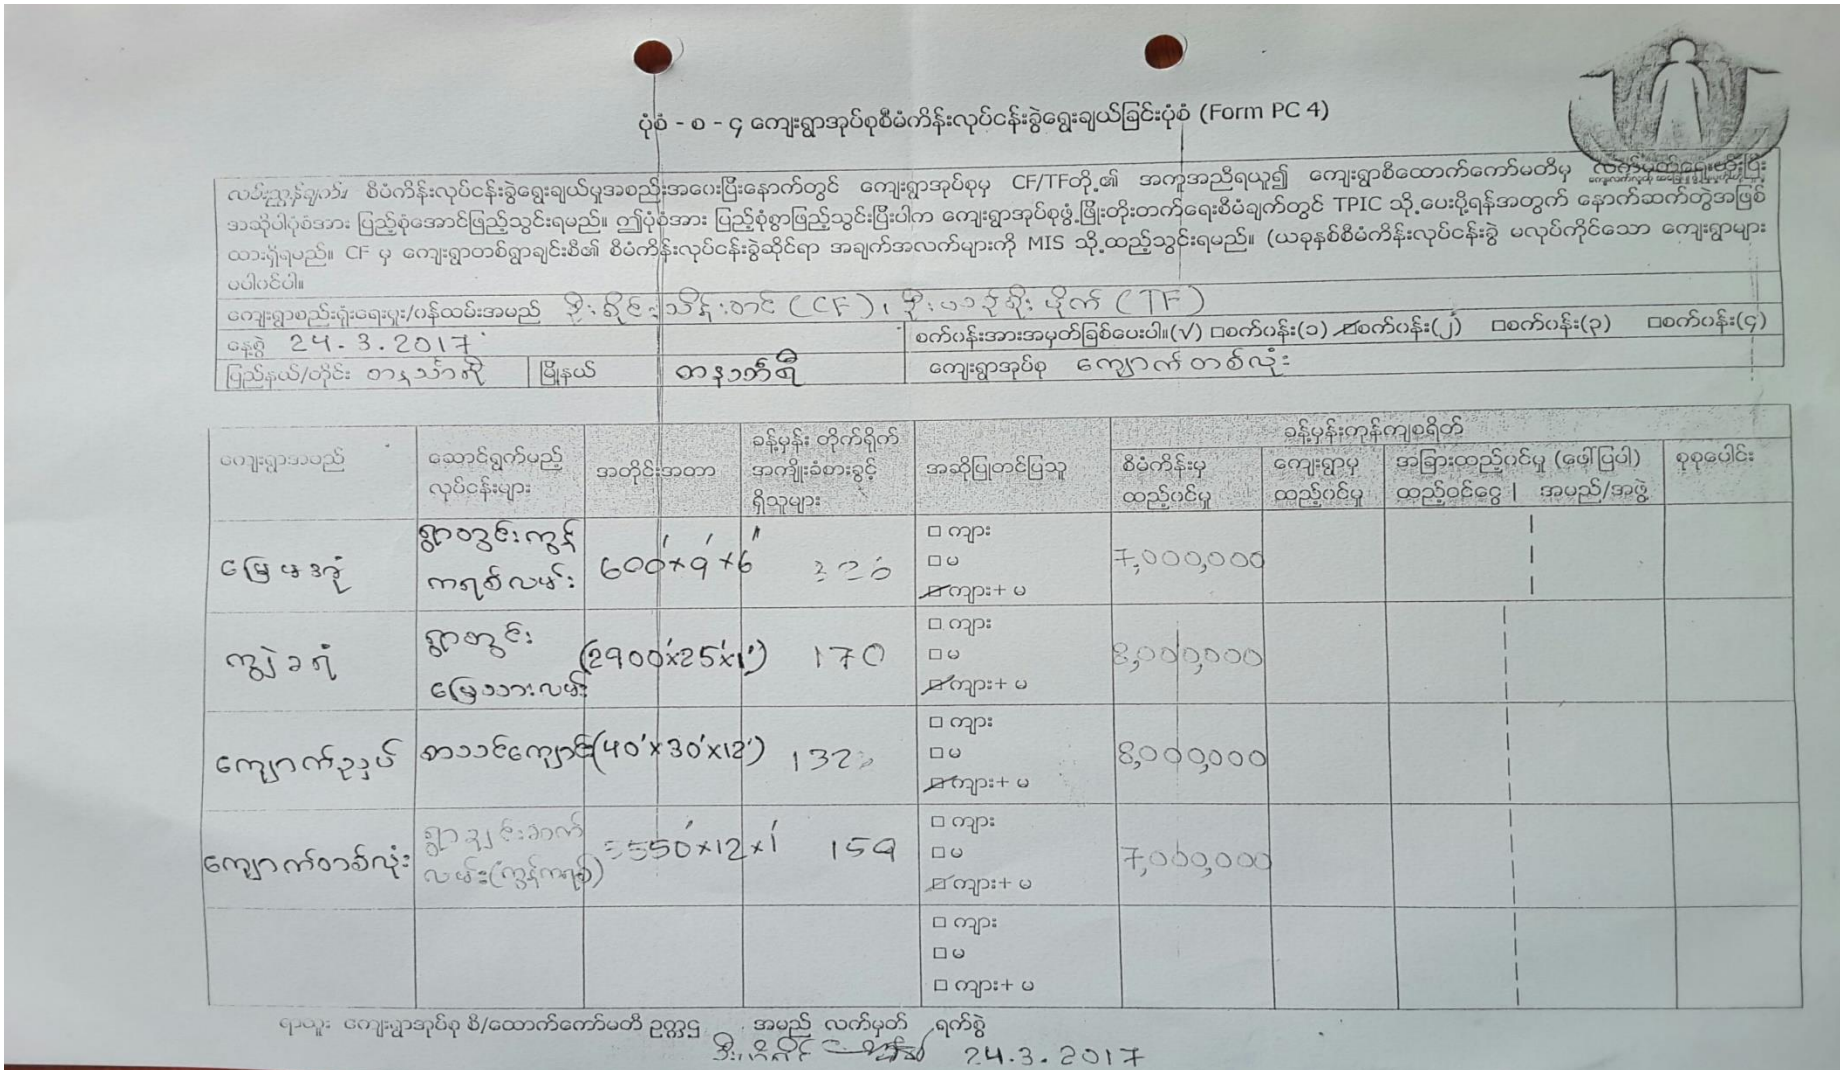 ပုံစံ - စ - ၄ ကျေးရွာအုပ်စုစီမံကိန်းလုပ်ငန်းခွဲရွေးချယ်ခြင်းပုံစံ (Form PC 4)
လမ်းညွှန်ချက်။ စီမံကိန်းလုပ်ငန်းခွဲရွေးချယ်မှုအစည်းအဝေးပြီးနောက်တွင် ကျေးရွာအုပ်စုမှ CF/TFတို့၏ အကူအညီရယူ၍ ကျေးရွာစီထောက်ကော်မတီမှ
အဆိုပါပုံစံအား ပြည့်စုံအောင်ဖြည့်သွင်းရမည်။ ဤပုံစံအား ပြည့်စုံစွာဖြည့်သွင်းပြီးပါက ကျေးရွာအုပ်စုဖွံ့ဖြိုးတိုးတက်ရေးစီမံချက်တွင် TPIC သို့ပေးပို့ရန်အတွက် နောက်ဆက်တွဲအဖြစ်
ထားရှိရမည်။ CF မှ ကျေးရွာတစ်ရွာချင်းစီ၏ စီမံကိန်းလုပ်ငန်းခွဲဆိုင်ရာ အချက်အလက်များကို MIS သို့ထည့်သွင်းရမည်။ (ယခုနှစ်စီမံကိန်းလုပ်ငန်းခွဲ မလုပ်ကိုင်သော ကျေးရွာများ
မပါဝင်ပါ။
ကျေးရွာစည်းရုံးရေးမှူး/ဝန်ထမ်းအမည် (CF) ၊ (TF)
နေ့စွဲ 24.3.2017 စက်ဝန်းအားအမှတ်ခြစ်ပေးပါ။(√) □စက်ဝန်း(၁) ☑စက်ဝန်း(၂) □စက်ဝန်း(၃) □စက်ဝန်း(၄)
ပြည်နယ်/တိုင်း တနင်္သာရီ မြို့နယ် တနင်္သာရီ ကျေးရွာအုပ်စု ကျောက်တစ်လုံး
ကျေးရွာအမည် ဆောင်ရွက်မည့် လုပ်ငန်းများ အတိုင်းအတာ ခန့်မှန်း တိုက်ရိုက် အကျိုးခံစားခွင့် ရှိသူများ အဆိုပြုတင်ပြသူ ခန့်မှန်းကုန်ကျစရိတ်
စီမံကိန်းမှ ထည့်ဝင်မှု ကျေးရွာမှ ထည့်ဝင်မှု အခြားထည့်ဝင်မှု (ဖော်ပြပါ) ထည့်ဝင်ငွေ | အမည်/အဖွဲ့ စုစုပေါင်း
ရွာတွင်းကွန် ကရစ်လမ်း 600'×9'×6" □ ကျား □ မ ☑ ကျား+ မ 7,000,000
ရွာတွင်း မြေသားလမ်း (2900'×25'×1') 170 □ ကျား □ မ ☑ ကျား+ မ 8,000,000
စာသင်ကျောင်း (40'×30'×12') □ ကျား □ မ ☑ ကျား+ မ 8,000,000
ကျောက်တစ်လုံး ရွာချင်းဆက် လမ်း(ကွန်ကရစ်) 159 □ ကျား □ မ ☑ ကျား+ မ 7,000,000
□ ကျား □ မ □ ကျား+ မ
ရာထူး ကျေးရွာအုပ်စု စီ/ထောက်ကော်မတီ ဥက္ကဋ္ဌ အမည် လက်မှတ် ရက်စွဲ
24.3.2017